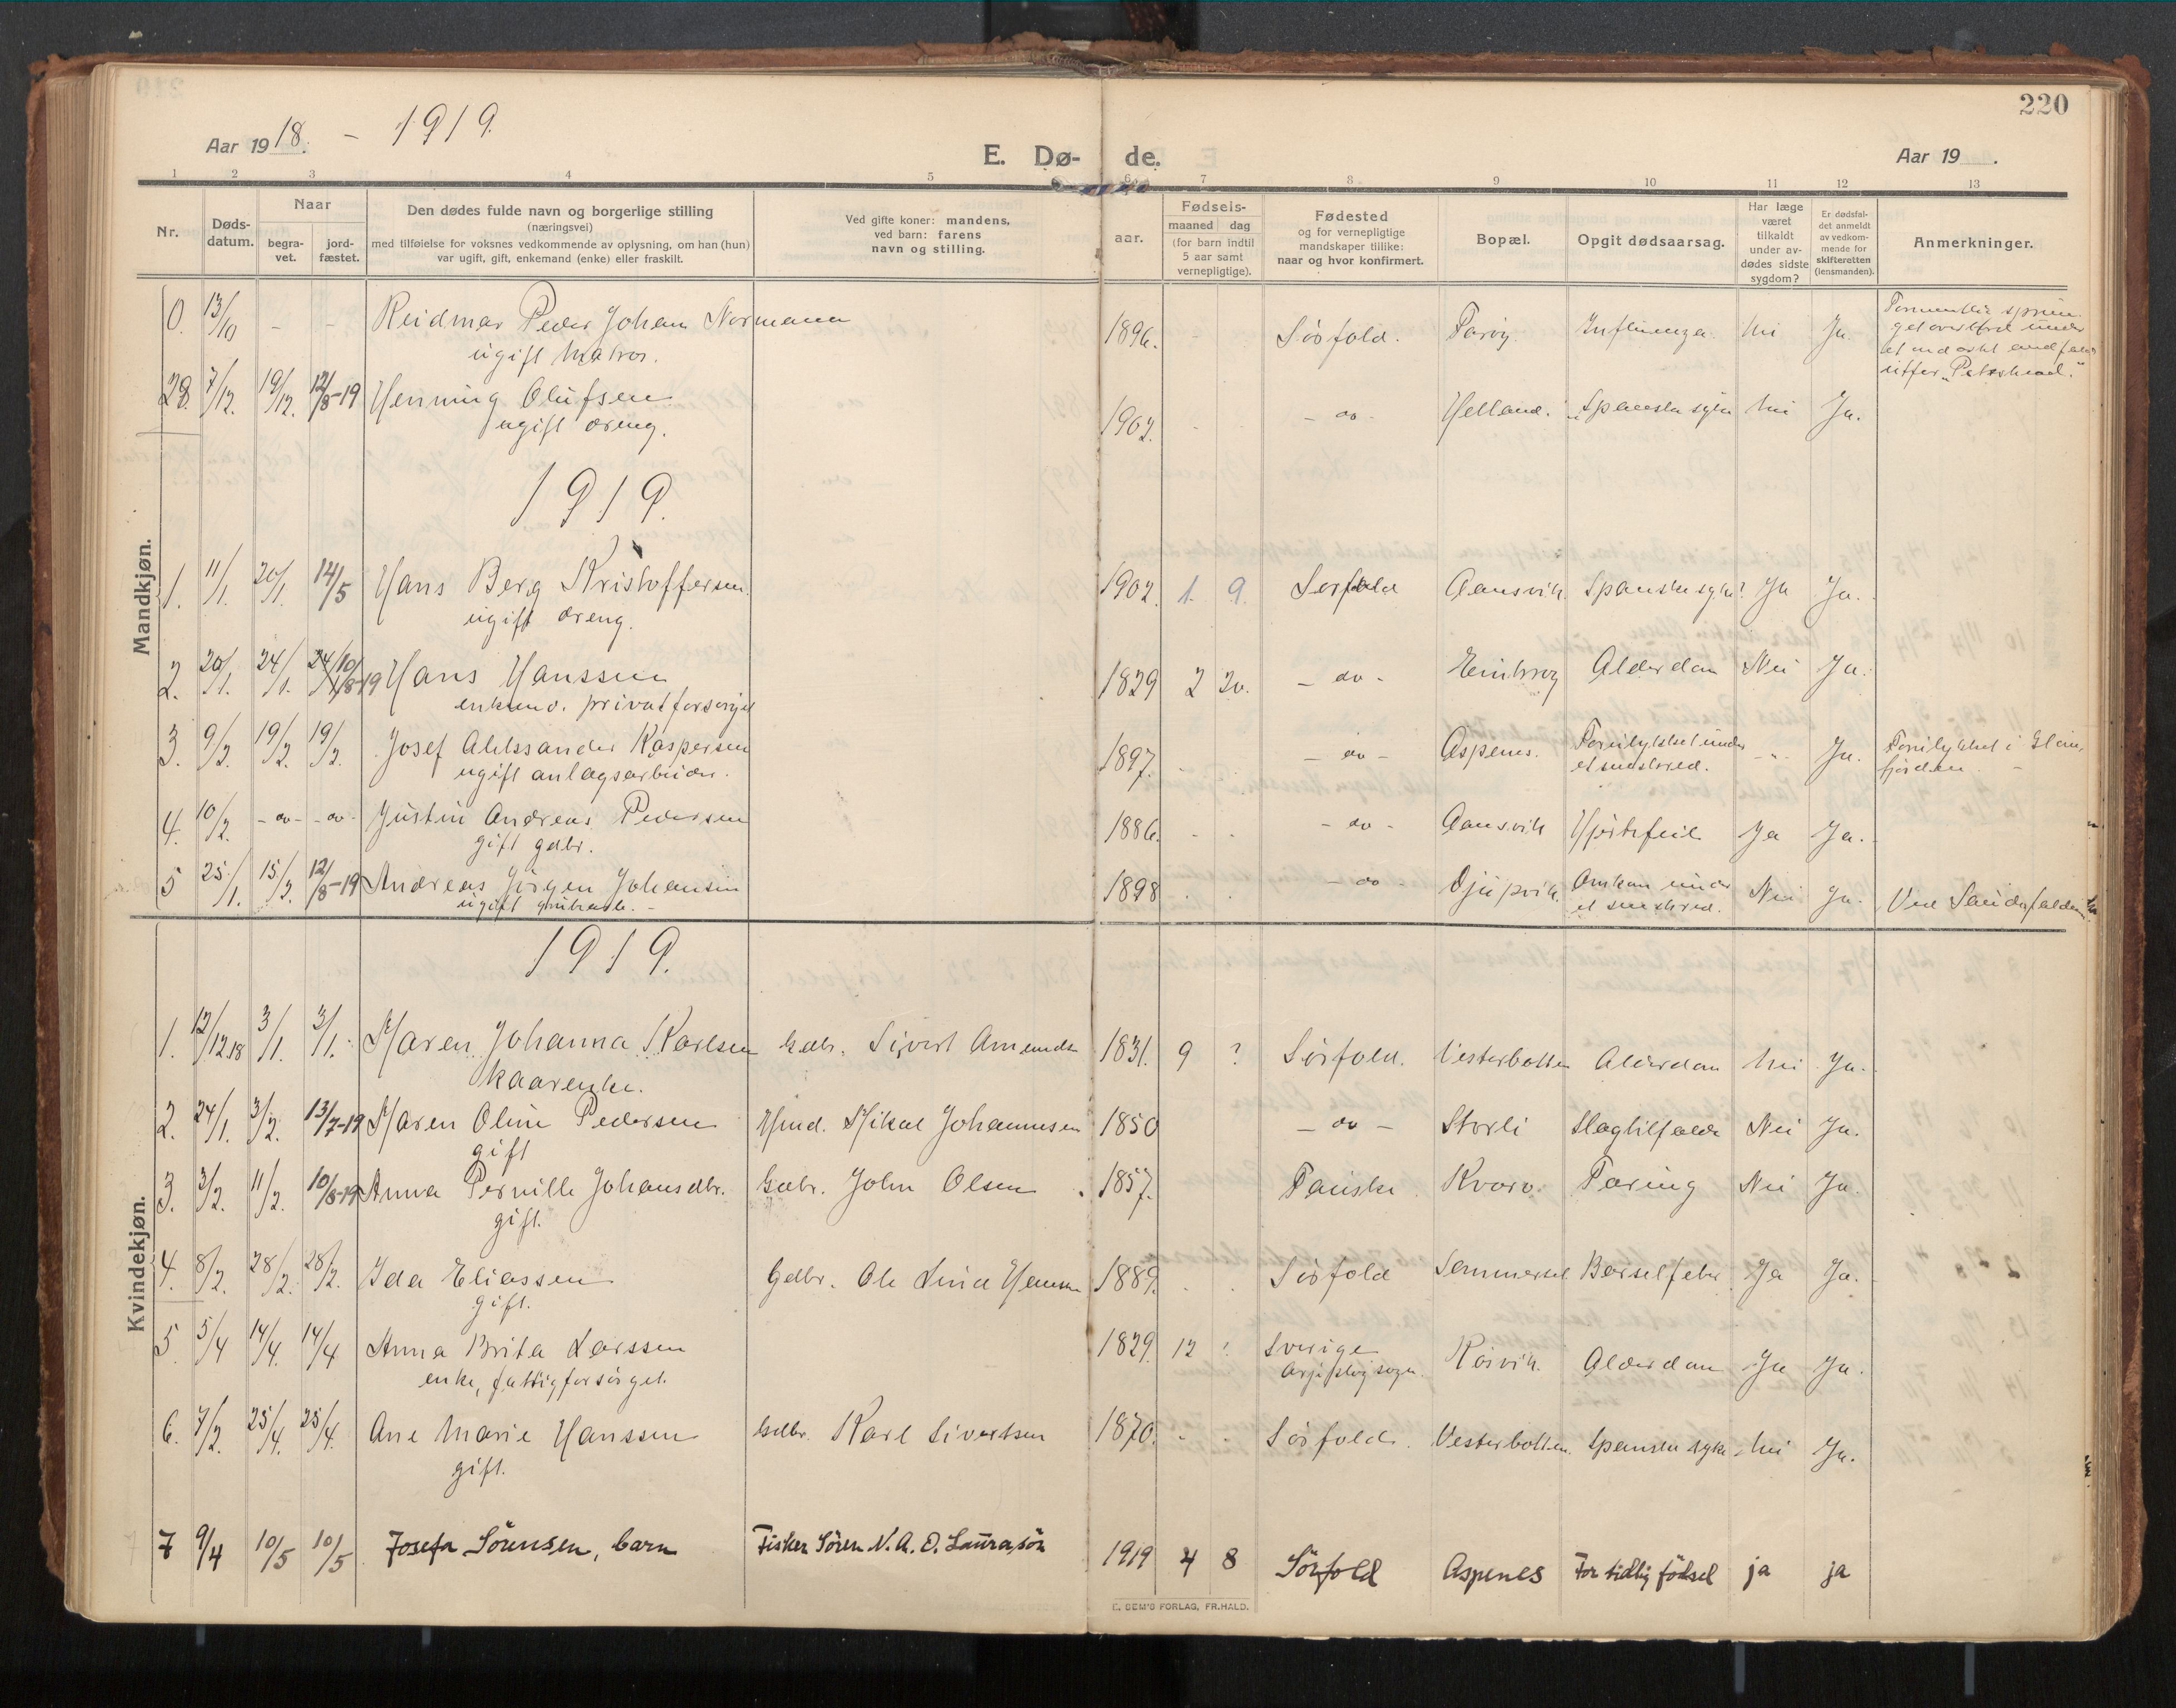 220
Aar 19 18. - 1919.
E. Dø- de.
Aar 19 .
1 2 3 4 5 6 7 8 9 10 11 12 13
Nr.
Døds-
datum.
Naar
begra-
vet.
jord-
fæstet.
Den dødes fulde navn og borgerlige stilling
(næringsvei)
med tilføielse for voksnes vedkommende av oplysning, om han (hun)
var ugift, gift, enkemand (enke) eller fraskilt.
Ved gifte koner: mandens,
ved barn: farens
navn og stilling.
aar.
Fødsels-
maaned dag
(for barn indtil
5 aar samt
vernepligtige).
Fødested
og for vernepligtige
mandskaper tillike:
naar og hvor konfirmert.
Bopæl.
Opgit dødsaarsag.
Har læge
været
tilkaldt
under av-
dødes sidste
sygdom?
Er dødsfal-
det anmeldt
av vedkom-
mende for
skifteretten
(lensmanden).
Anmerkninger.
Mandkjøn.
0. 13/10 - - Reidmar Peder Johan Normann 1896. - - Sörfold. Farøy. Influenza. Nei Ja.
ugift matros.
28. 7/12. 19/12. 12/8-19 Henning Olufsen 1902. - - - do - Helland. Spanska syke Nei Ja.
ugift dreng.
1919.
1. 11/1. 20/1. 14/5 Hans Berg Kristoffersen. 1902. 1. 9. Sørfold Aansvik. Spanska syke? Ja Ja.
ugift dreng.
2. 20/1. 24/1. 10/8-19 Hans Hanssen 1829 2 20. - do - Alderdom Nei Ja.
enkem. privat forsørget
3. 9/2. 19/2. 19/2. Josef Aleksander Kaspersen 1897. - do - Aspenes. Forulykket under - " - Ja. Forulykket i Glom-
ugift anlægsarbeider. et sneskred. fjorden.
4. 10/2. - do - - do - Justin Andreas Pedersen 1886. - - - do - Aansvik Hjertefeil Ja Ja.
gift gdbr.
5 25/1. 15/2. 12/8-19 Andreas Jörgen Johansen 1898 - do - Djupvik. Omkom under Nei Ja.
ugift et sneskred.
1919.
Kvindekjøn.
1. 12/12 18 3/1. 3/1. Maren Johanna Karlsen Gdbr. Sivert Amundsen 1831. 9 ? Sörfold. Vesterbotten Alderdom Nei Ja.
kaarenke.
2. 24/1. 3/2. 13/7-19 Maren Oline Pedersen Hmd. Mikal Johannesen 1850 - do - Storli Slagtilfælde Nei Ja.
gift
3. 3/2. 11/2. 10/8-19 Anna Pernille Johansdtr. Gdbr. John Olsen 1857. Fauske Kvarv. Tæring Nei Ja.
gift.
4. 8/2. 28/2. 28/2. Ida Eliassen Gdbr. Ole Hansen 1889. Sörfold Sommerset Barselfeber Ja Ja.
gift.
5 5/4 14/4. 14/4 Anna Brita Larssen 1829. 12 ? Sverige Röivik. Alderdom Ja Ja.
enke, fattigforsörget. Arjeplog sogn.
6. 7/2. 25/4. 25/4. Ane Marie Hanssen Gdbr. Karl Sivertsen 1870. - - Sörfold. Vesterbotten. Spanska syke Nei Ja.
gift.
7 9/4 10/5 10/5 Josefa Sörensen, barn Fisker Sören N. A. O. Laurasön 1919 4 8 Sörfold Aspenes For tidlig födsel ja ja
E. SEM'S FORLAG, FR.HALD.